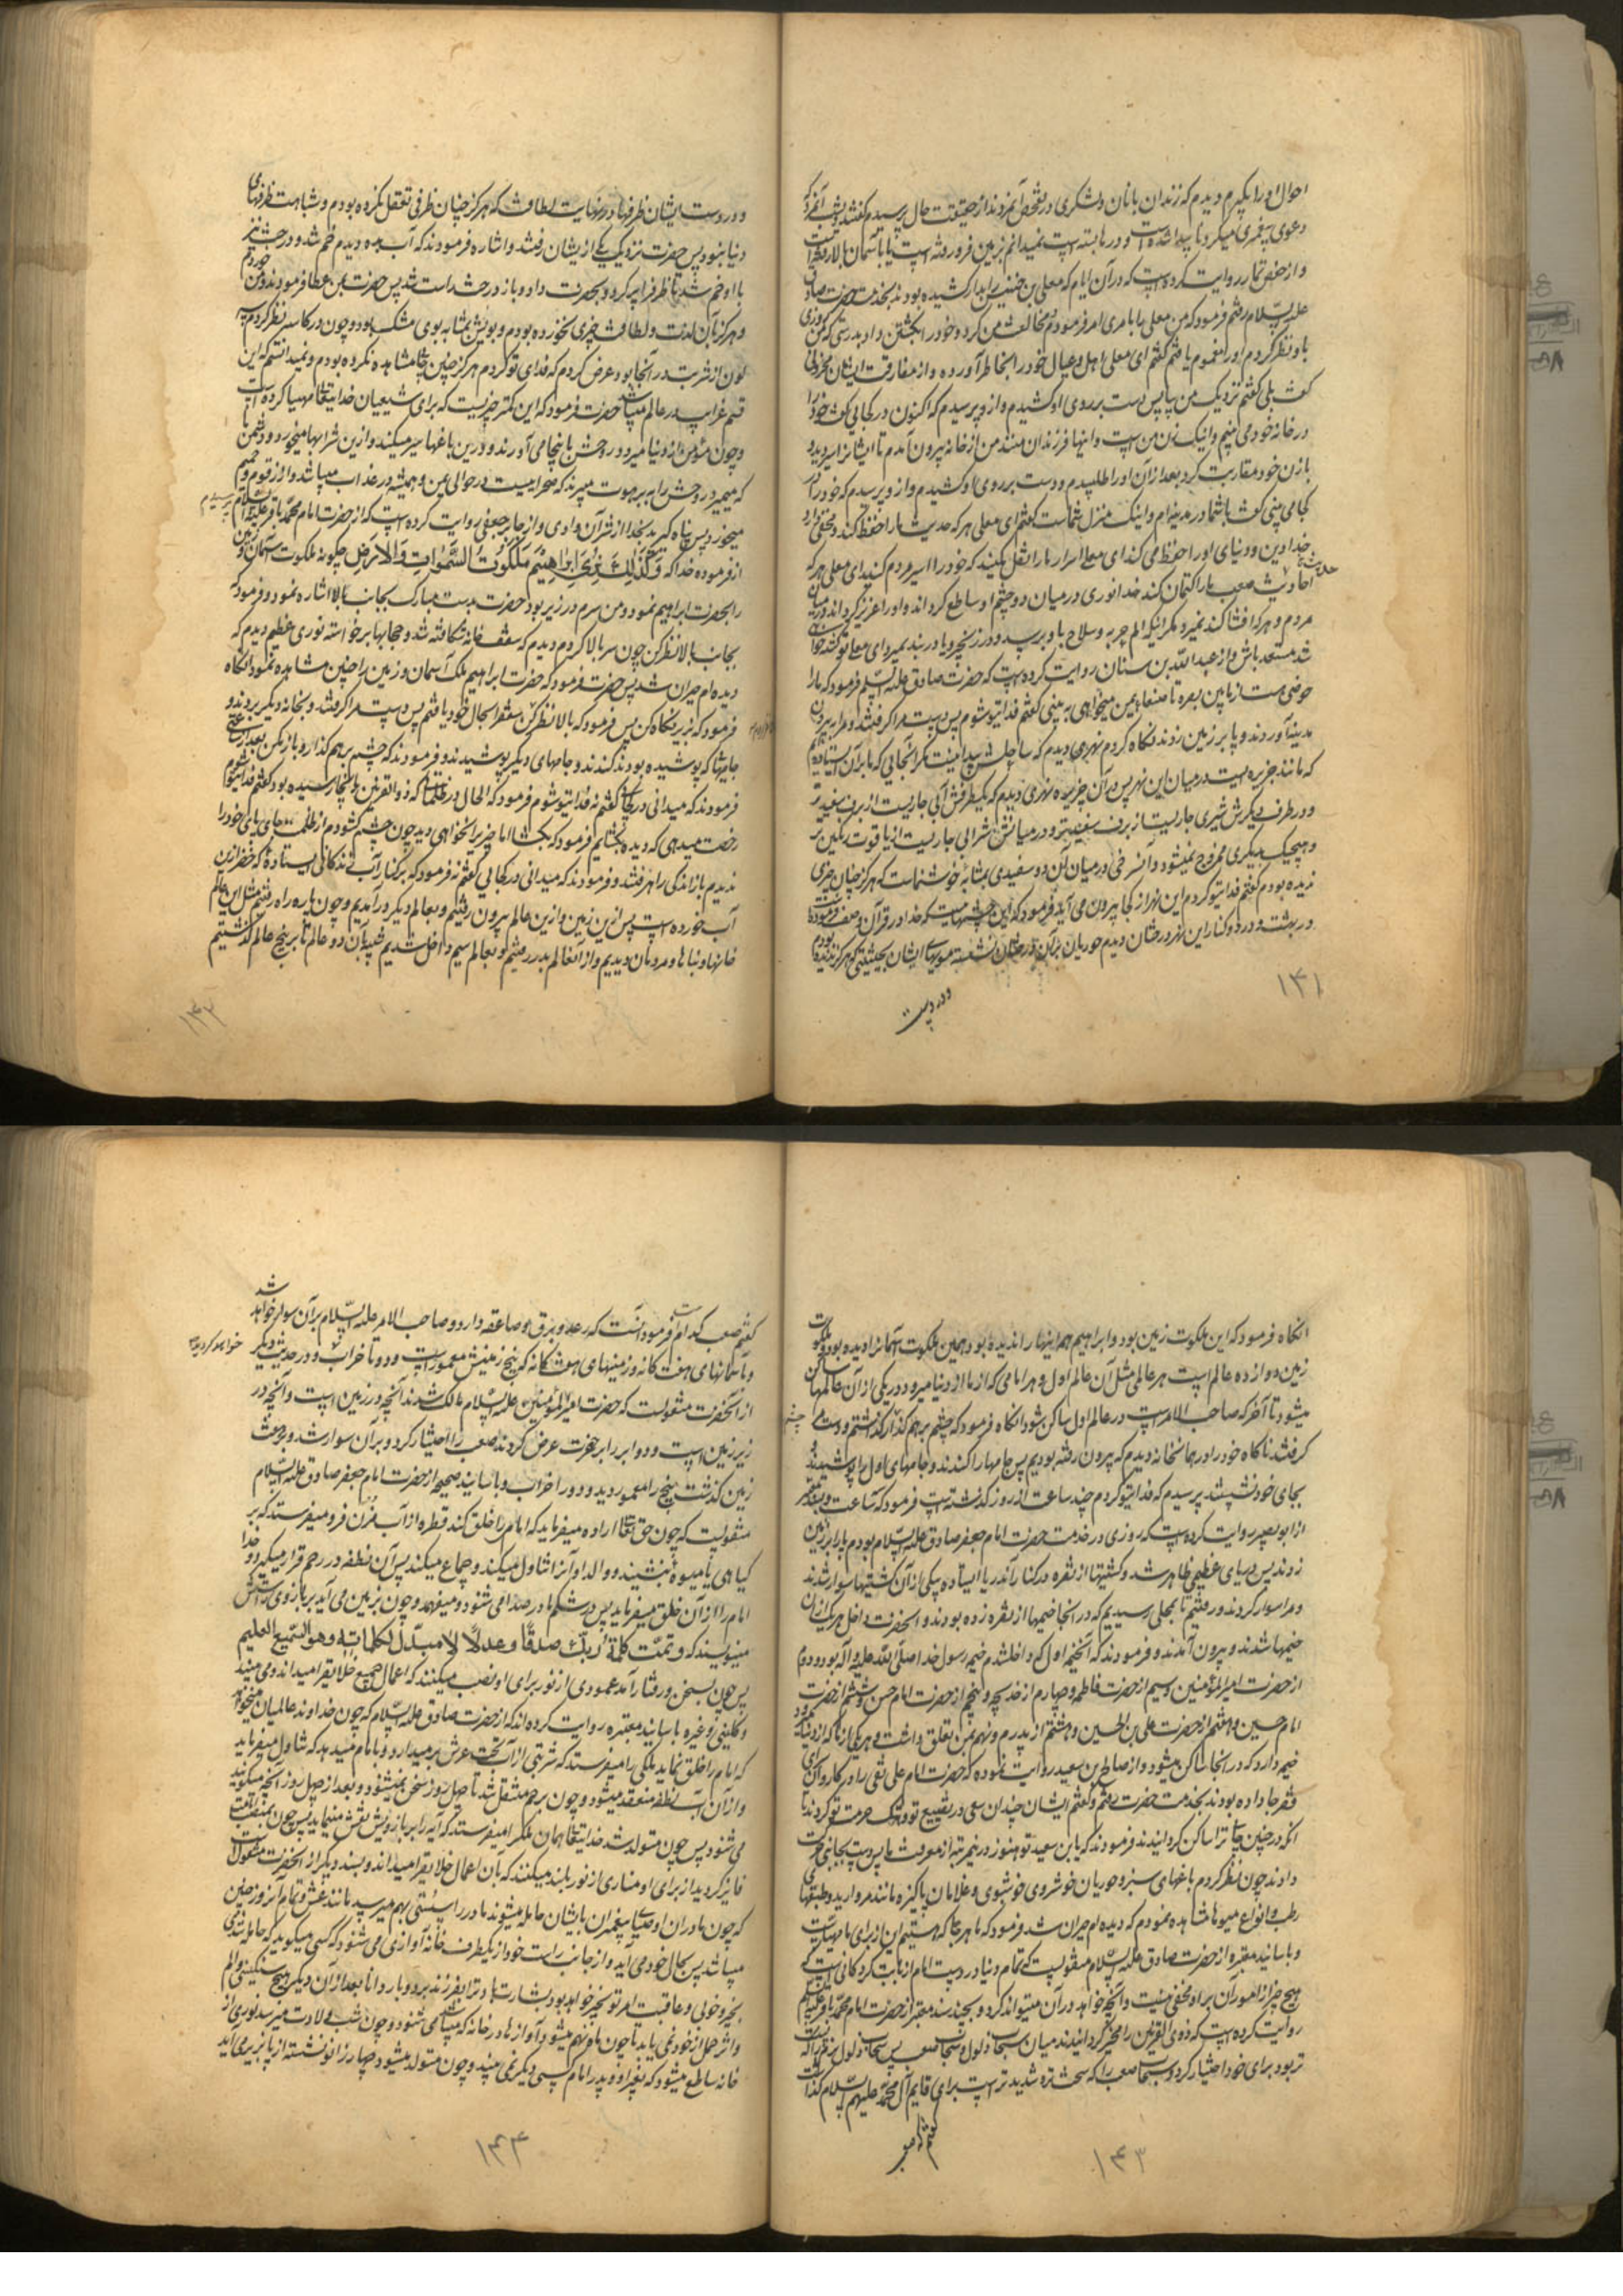 احوال او را بگیرم دیدم که زندان بانان و لشکری در تفحص آنمردند از حقیقت حال پرسیدم گفتند دوش آنمرد که
دعوی پیغمبری میکرد ناپیدا شده است و در بسته است نمیدانم بزمین فرو رفته است یا بآسمان بالا رفته است
و از حفص تمار روایت کرده است که در آن ایام که معلی بن خنیس را بدار کشیده بودند بخدمت حضرت صادق
علیه السلام رفتم فرمود که من معلی را بامری امر فرمودم مخالفت من کرد و خود را بکشتن داد بدرستی که من روزی
باو نظر کردم او را مغموم یافتم گفتم ای معلی اهل و عیال خود را بخاطر آورده و از مفارقت ایشان محزونی
گفت بلی گفتم نزدیک من بیا پس دست بر روی او کشیدم و از او پرسیدم که اکنون در کجایی گفت خود را
در خانه خود می بینم و اینک زن من است و اینها فرزندان منند من از خانه بیرون آمدم تا ایشانرا سیر دید و
با زن خود مقاربت کرد بعد از آن او را طلبیدم و دست بر روی او کشیدم و از او پرسیدم که خود را در
کجا می بینی گفت با شما در مدینه ام و اینک منزل شماست گفتم ای معلی هر که حدیث ما را حفظ کند و مخفی دارد
خدا دین و دنیای او را حفظ می کند ای معلی اسرار ما را نقل مکنید که خود را اسیر مردم کنید ای معلی هر که
احادیث صعب ما را کتمان کند خدا نوری در میان دو چشم او ساطع گرداند و او را عزیز گرداند در میان
مردم و هر که افشا کند نمیرد مگر اینکه الم حربه و سلاح باو برسد و در زنجیر و یا در بند بمیرد ای معلی تو کشته خواهی
شد مستعد باش و از عبد الله بن سنان روایت کرده است که حضرت صادق علیه السلام فرمود که ما را
حوضی هست از مابین بصره تا صنعاء یمن میخواهی به بینی گفتم فدای تو شوم پس دست مرا گرفتند و مرا بیرون
مدینه آوردند و پا بر زمین زدند نگاه کردم نهری دیدم که ساحلش پیدا نیست مگر آنجایی که ما بر آن ایستاده ایم
که مانند جزیره ایست در میان این نهر پس در آن جزیره نهری دیدم که یکطرفش آبی جاریست از برف سفیدتر
و در طرف دیگرش شیری جاریست از برف سفیدتر و در میانش شرابی جاریست از یاقوت رنگین تر
و هیچیک بدیگری ممزوج نمیشود و آن سرخی در میان آن دو سفیدی بمثابه خوشنماست که هرگز چنان چیزی
ندیده بودم گفتم فدای تو گردم این نهر از کجا بیرون می آید فرمود که این چشمهاییست که خدا در قرآن وصف فرموده
در بهشت و در دو کنار این نهر درختان دیدم حوریان بر آن درختان نشسته مویهای ایشان بحیثیتی که هرگز ندیده بودم
و در دست
۱۴۱
و در دست ایشان ظرفها در نهایت لطافت که هرگز چنان ظرفی تعقل نکرده بودم و شباهت بظرفهای
دنیا نبود پس حضرت نزدیک یکی از ایشان رفتند و اشاره فرمودند که آب بده دیدم خم شد و درخت نیز
با او خم شد تا ظرف را پر کرد و بحضرت داد و باز درخت راست شد پس حضرت بمن عطا فرمودند و من خوردم
و هرگز بآن لذت و لطافت چیزی نخورده بودم و بویش بمثابه بوی مشک بود و چون در کاسه نظر کردم سه
لون از شربت در آنجا بود عرض کردم که فدای تو گردم هرگز چنین چیزی مشاهده نکرده بودم و نمیدانستم که این
قسم غرایب در عالم میباشد حضرت فرمود که این کمتر چیزیست که برای شیعیان خدایتعالی مهیا کرده است
و چون مؤمن از دنیا میرود روحش باینجا می آورند و درین باغها سیر میکند و ازین شرابها میخورد و دشمن ما
که میمیرد روحش را به برهوت میبرند که صحراییست در حوالی یمن و همیشه در عذاب میباشد و از زقوم و حمیم
میخورد پس پناه گیرید بخدا از شر آن وادی و از جابر جعفی روایت کرده است که از حضرت امام محمد باقر علیه السلام پرسیدم
از فرموده خدا که وَكَذَٰلِكَ نُرِي إِبْرَاهِيمَ مَلَكُوتَ السَّمَوَاتِ وَالْأَرْضِ چگونه ملکوت آسمان و زمین
را بحضرت ابراهیم نمود و من سرم در زیر بود حضرت بدست مبارک بجانب بالا اشاره نمود و فرمود که
بجانب بالا نظر کن چون سر بالا کردم دیدم که سقف خانه شکافته شد و حجابها برخواسته نوری عظیم دیدم که
دیده ام حیران شد پس حضرت فرمود که حضرت ابراهیم ملک آسمان و زمین را چنین مشاهده نمود آنگاه
فرمود که بزیر نگاه کن پس فرمود که بالا نظر کن سقف را بحال خود یافتم پس دست مرا گرفتند و بخانه دیگر بردند و
جامها که پوشیده بودند کندند و جامهای دیگر پوشیدند و فرمودند که چشم بر هم گذار و باز مکن بعد از ساعتی
فرمودند که میدانی در کجائی گفتم نه فدای تو شوم فرمود که الحال در ظلماتی که ذوالقرنین بآنجا رسیده بود گفتم فدای تو شوم
رخصت میدهی که دیده بگشایم فرمود که بگشا اما چیزی را نخواهی دید چون چشم گشودم از ظلمت جای پای خود را
ندیدم باز اندکی راه رفتند و فرمودند که میدانی در کجایی گفتم نه فرمود که بر کنار آب زندگانی ایستاده که خضر از آن
آب خورده است پس ازین زمین و ازین عالم بیرون رفتیم و بعالم دیگر در آمدیم و چون پاره راه رفتیم مثل این عالم
خانها و بناها و مردمان دیدیم و از آن عالم بدر رفتیم و بعالم سیم داخل شدیم شبیه بآن دو عالم تا بر پنج عالم گذشتیم
۱۴۲
آنگاه فرمود که این ملکوت زمین بود و ابراهیم همه اینها را ندیده بود همین ملکوت آسمانرا دیده بود و ملکوت
زمین دوازده عالم است هر عالمی مثل آن عالم اول و هر امامی که از ما از دنیا میرود در یکی از آن عالمها ساکن
میشود تا آخر که صاحب الامر است در عالم اول ساکن شود آنگاه فرمود که چشم بر هم گذار گذاشتم و دست
گرفتند ناگاه خود را در همان خانه دیدم که بیرون رفته بودیم پس جامها را کندند و جامهای اول را پوشیدند و
بجای خود نشستند پرسیدم که فدای تو گردم چند ساعت از روز گذشته است فرمود که سه ساعت و بسند معتبر
از ابو بصیر روایت کرده است که روزی در خدمت حضرت امام جعفر صادق علیه السلام بودم پا را بر زمین
زدند پس دریای عظیمی ظاهر شد و کشتیها از نقره در کنار آن دریا ایستاده بیکی از آن کشتیها سوار شدند
و مرا سوار کردند و رفتیم تا بمحلی رسیدیم که در آنجا خیمها از نقره زده بودند و آنحضرت داخل هر یک از آن
خیمها شدند و بیرون آمدند و فرمودند که آنخیمه اول که داخل شدم خیمه رسول خدا صلی الله علیه و آله بود و دوم
از حضرت امیرالمؤمنین و سیم از حضرت فاطمه و چهارم از خدیجه و پنجم از حضرت امام حسن و ششم از حضرت
امام حسین و هفتم از حضرت علی بن الحسین و هشتم از پدرم و نهم بمن تعلق داشت و هر یک از ما که از دنیا میرود
خیمه دارد که در آنجا ساکن میشود و از صالح بن سعید روایت نموده که حضرت امام علی نقی را در کاروان سرای
فقرا جا داده بودند بخدمت حضرت رفتم و گفتم ایشان چندان سعی در تضییع تو و هتک حرمت تو کردند تا
آنکه در چنین جائی ترا ساکن گردانیدند فرمودند که یابن سعید تو هنوز درین مرتبه از معرفت ما پس دست بجانبی حرکت
دادند چون نظر کردم باغهای سبز و حوریان خوشروی خوشبوی و غلامان پاکیزه مانند مروارید و طبقهای
رطب و انواع میوها مشاهده نمودم که دیده ام حیران شد فرمود که ما هر جا که هستیم این از برای ما مهیاست
و باسانید معتبره از حضرت صادق علیه السلام منقولست که تمام دنیا در دست امام از بابت گردکانی است که
هیچ چیز از امور آن بر او مخفی نیست و آنچه خواهد در آن میتواند کرد و بچند سند معتبر از حضرت امام محمد باقر علیه السلام
روایت کرده است که ذوی القرنین را مخیر گردانیدند میان سحاب ذلول و سحاب صعب پس سحاب ذلول نرم را که
تر بود برای خود اختیار کرد و سحاب صعب را که سخت تر و شدیدتر است برای قایم آل محمد علیهم السلام گذاشت
گفتم که صعب
۱۴۳
گفتم صعب کدام است فرمود آنست که رعد و برق و صاعقه دارد و صاحب الامر علیه السلام بر آن سوار خواهد شد
و بآسمانهای هفت گانه و زمینهای هفت گانه که پنج زمینش معمور است و دو تا خراب و در حدیث دیگر
خواهد گردید
از آنحضرت منقولست که حضرت امیرالمؤمنین علیه السلام مالک شدند آنچه در زمین است و آنچه در
زیر زمین است و دو ابر را بر حضرت عرض کردند صعب را اختیار کرد و بر آن سوار شد و بر هفت
زمین گذشت پنج را معمور دید و دو را خراب و باسانید صحیحه از حضرت امام جعفر صادق علیه السلام
منقولست که چون حق تعالی اراده میفرماید که امام را خلق کند قطره از آب مزن فرو میفرستد که بر
گیاهی یا میوه بنشیند و والد او آنرا تناول میکند و جماع میکند پس آن نطفه در رحم قرار میگیرد و خدا
امام را از آن خلق میفرماید پس در شکم مادر صدا می شنود و میفهمد و چون بزمین می آید بر بازوی راستش
مینویسند که و تمت کلمة ربک صدقا و عدلا لا مبدل لکلماته و هو السمیع العلیم
پس چون بسخن و رفتار آمد عمودی از نور برای او نصب میکنند که اعمال جمیع خلایق را میداند و می بیند
و کلینی و غیره باسانید معتبره روایت کرده اند که از حضرت صادق علیه السلام که چون خداوند عالمیان میخواهد
که امام را خلق نماید ملکی را میفرستد که شربتی از آب تحت عرش بر میدارد و بامام میدهد که تناول میفرماید
و از آن آب نطفه منعقد میشود و چون برحم منتقل شد تا چهل روز سخن نمیشنود و بعد از چهل روز آنچه میگویند
می شنود پس چون متولد شد خدایتعالی همان ملک را میفرستد که آیه را بر بازویش نقش مینماید پس چون بمنصب امامت
فایز گردید از برای او مناری از نور بلند میکنند که بآن اعمال خلایق را میداند و بسند دیگر از آنحضرت منقولست
که چون مادران اوصیای پیغمبران بایشان حامله میشوند مادر را سستی بهم میرسد مانند غش و تمام آنروز چنین
میباشد پس بحال خود می آید و از جانب راست خود از یکطرف خانه آوازی می شنود که کسی میگوید که حامله شدی
بخیر و خوبی و عاقبت امر تو بخیر خواهد بود بشارت باد ترا بفرزند بردبار دانا بعد از آن دیگر هیچ سنگینی و الم
و اثر حمل از خود نمی یابد تا چون ماه نهم میشود آوازها در خانه که میباشد می شنود و چون شب ولادت میرسد نوری از
خانه ساطع میشود که بغیر او و پدر امام کسی دیگر نمی بیند و چون متولد میشود چهار زانو نشسته از پا بزیر می آید
۱۴۴